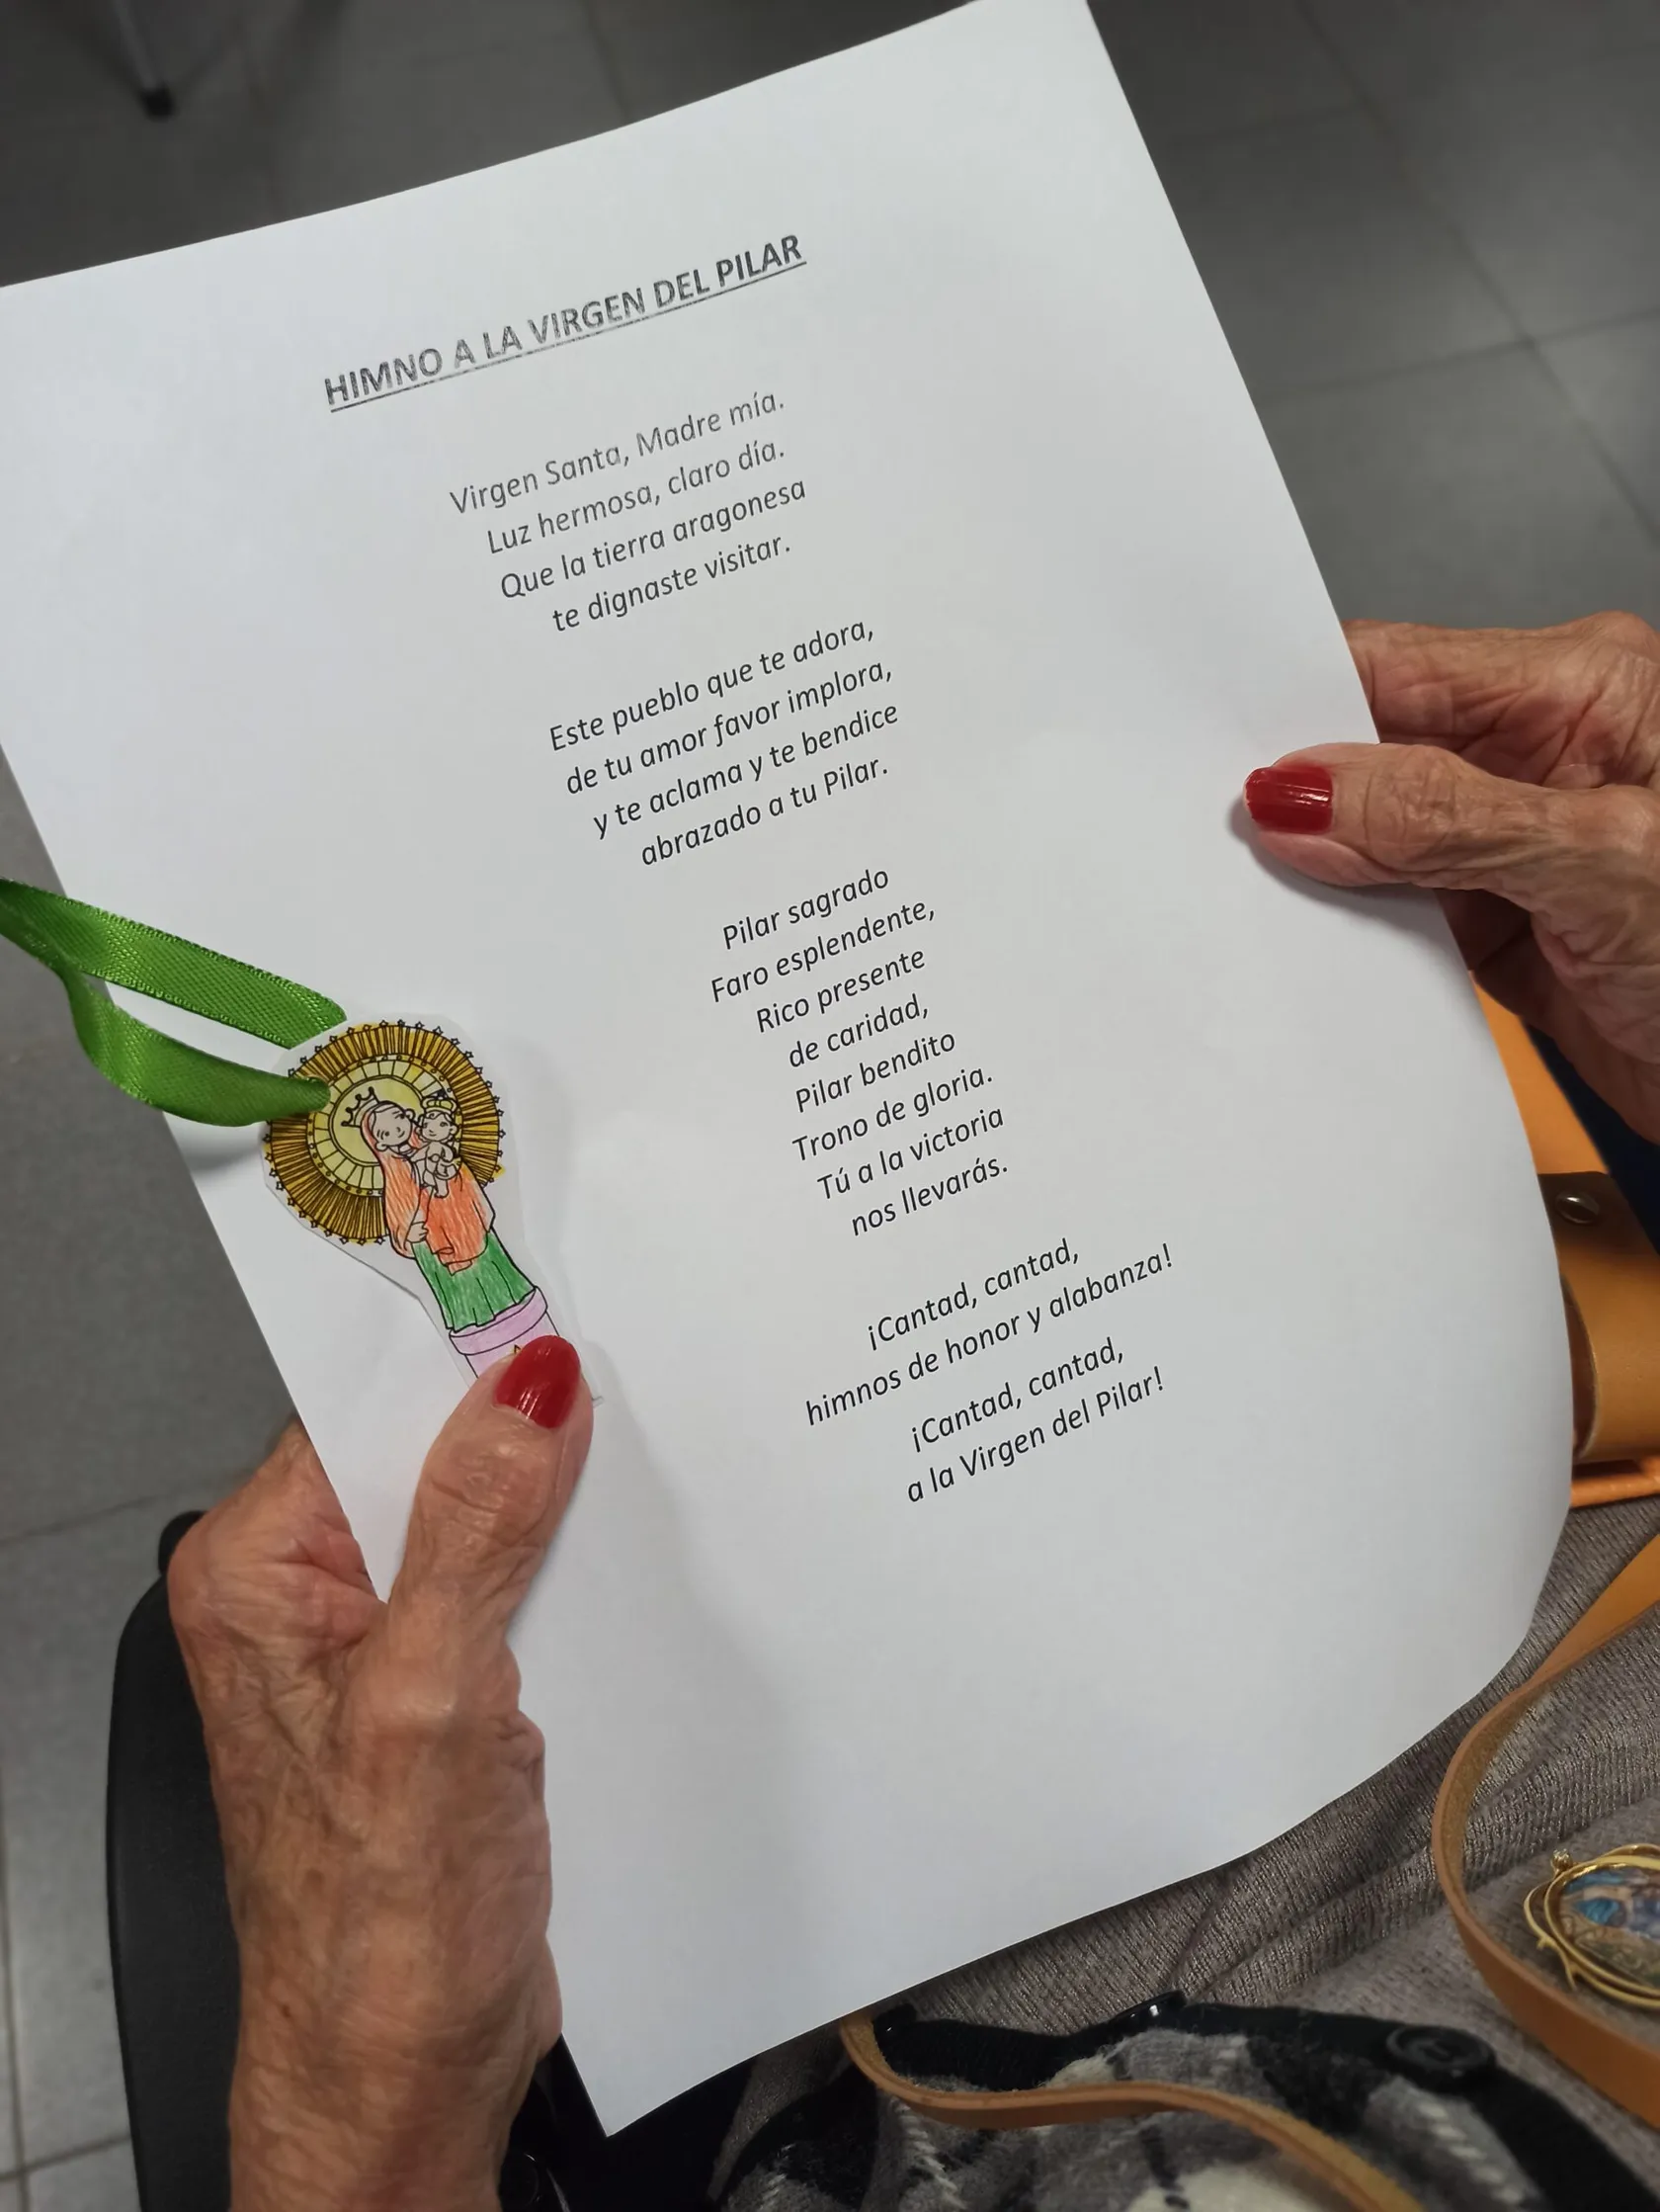 HIMNO A LA VIRGEN DEL PILAR
Virgen Santa, Madre mía.
Luz hermosa, claro día.
Que la tierra aragonesa
te dignaste visitar.
Este pueblo que te adora,
de tu amor favor implora,
y te aclama y te bendice
abrazado a tu Pilar.
Pilar sagrado
Faro esplendente,
Rico presente
de caridad,
Pilar bendito
Trono de gloria.
Tú a la victoria
nos llevarás.
¡Cantad, cantad,
himnos de honor y alabanza!
¡Cantad, cantad,
a la Virgen del Pilar!